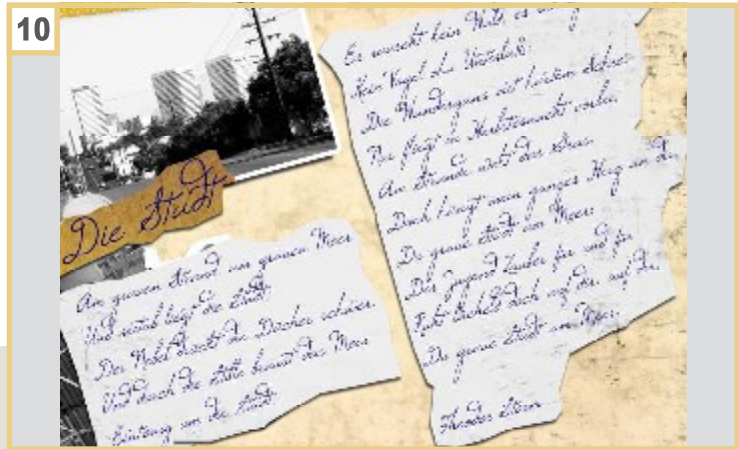 10
Die Stadt
Am grauen Strand, am grauen Meer
Und seitab liegt die Stadt;
Der Nebel drückt die Dächer schwer,
Und durch die Stille braust das Meer
Eintönig um die Stadt.
Es rauscht kein Wald, es
Kein Vogel ohn Unterlaß;
Die Wandergans mit hartem Schrei
Nur fliegt in Herbstesnacht vorbei,
Am Strande weht das Gras.
Doch hängt mein ganzes Herz an dir,
Du graue Stadt am Meer;
Der Jugend Zauber für und für
Ruht lächelnd doch auf dir, auf dir,
Du graue Stadt am Meer.
Theodor Storm